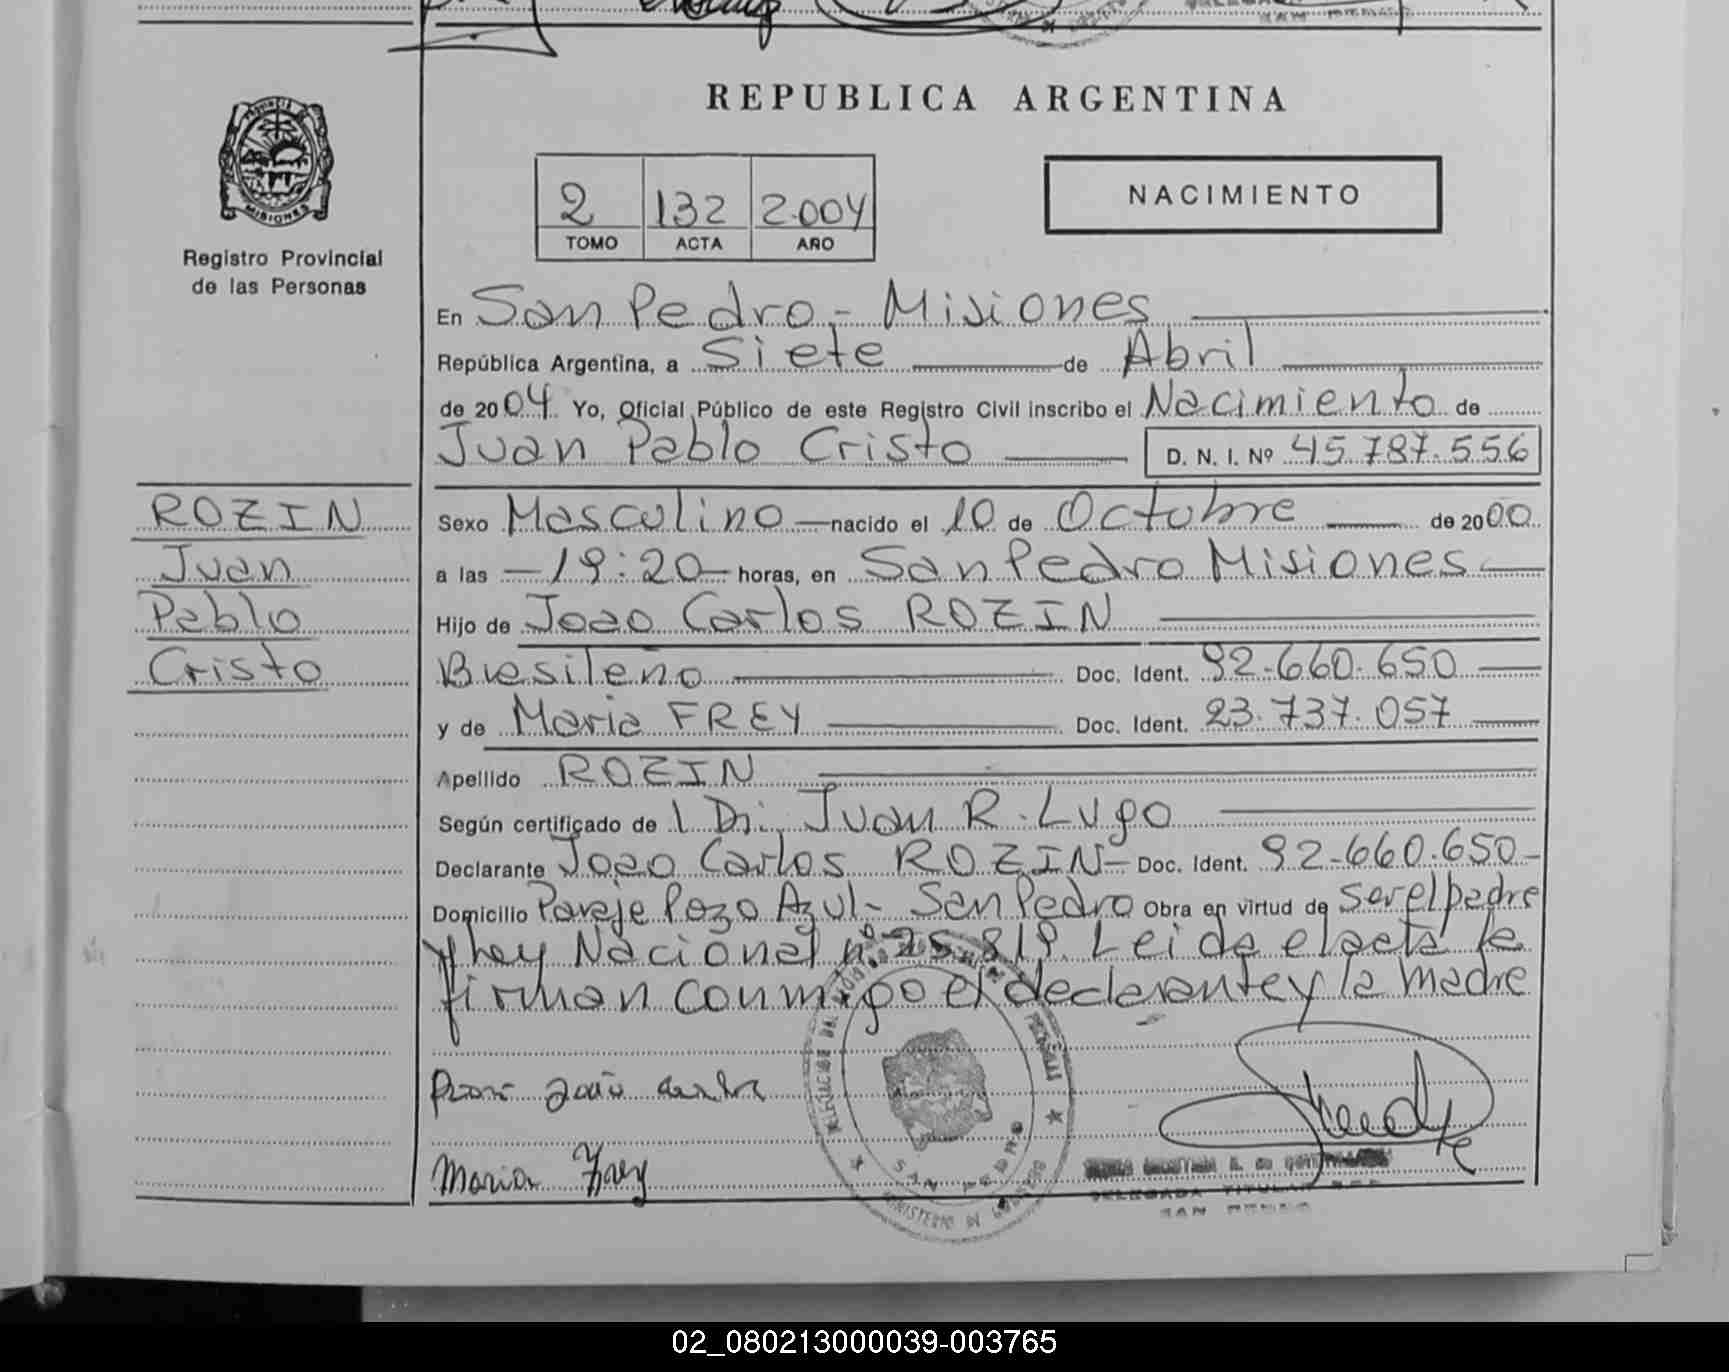 REPUBLICA ARGENTINA
PROVINCIA DE MISIONES
Registro Provincial
de las Personas
2 132 2.004
TOMO ACTA AÑO
NACIMIENTO
En San Pedro - Misiones
República Argentina, a Siete de Abril
de 2004 Yo, Oficial Público de este Registro Civil inscribo el Nacimiento de
Juan Pablo Cristo D. N. I. Nº 45.787.556
ROZIN
Juan
Pablo
Cristo
Sexo Masculino nacido el 10 de Octubre de 2000
a las 19:20 horas, en San Pedro Misiones
Hijo de Joao Carlos ROZIN
Brasileño Doc. Ident. 92.660.650
y de Maria FREY Doc. Ident. 23.737.057
Apellido ROZIN
Según certificado de Dr. Juan R. Lugo
Declarante Joao Carlos ROZIN Doc. Ident. 92.660.650
Domicilio Paraje Pozo Azul - San Pedro Obra en virtud de ser el padre
y ley Nacional nº 25.819. Leida el acta la
firman conmigo el declarante y la madre
João
Maria Frey
SAN PEDRO
MINISTERIO DE GOBIERNO
DELEGADA TITULAR
SAN PEDRO
02_080213000039-003765